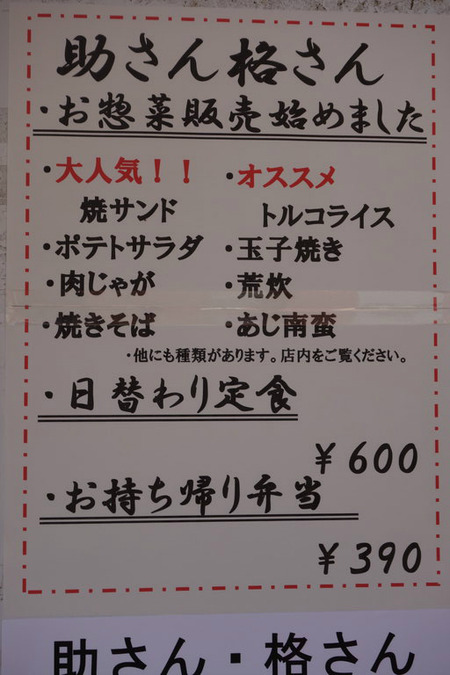 助さん格さん
・お惣菜販売始めました
・大人気！！ ・オススメ
焼サンド トルコライス
・ポテトサラダ ・玉子焼き
・肉じゃが ・荒炊
・焼きそば ・あじ南蛮
・他にも種類があります。店内をご覧ください。
・日替わり定食
￥600
・お持ち帰り弁当
￥390
助さん・格さん